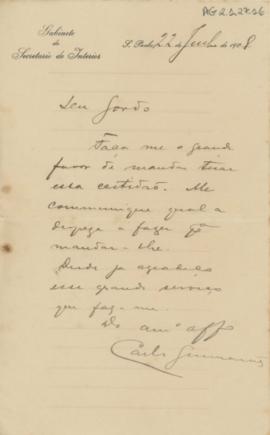 AG 2.1.27.26
Gabinete
do
Secretario do Interior
S. Paulo, 22 de Junho de 1908
Seu Gordo
Faça me o grande
favor de mandar tirar
essa certidão. Me
communique qual a
despeza a fazer
mandar-lhe.
Desde ja agradeço
esse grande serviço
que faz-me.
Do amº affº
Carlos Guimarães